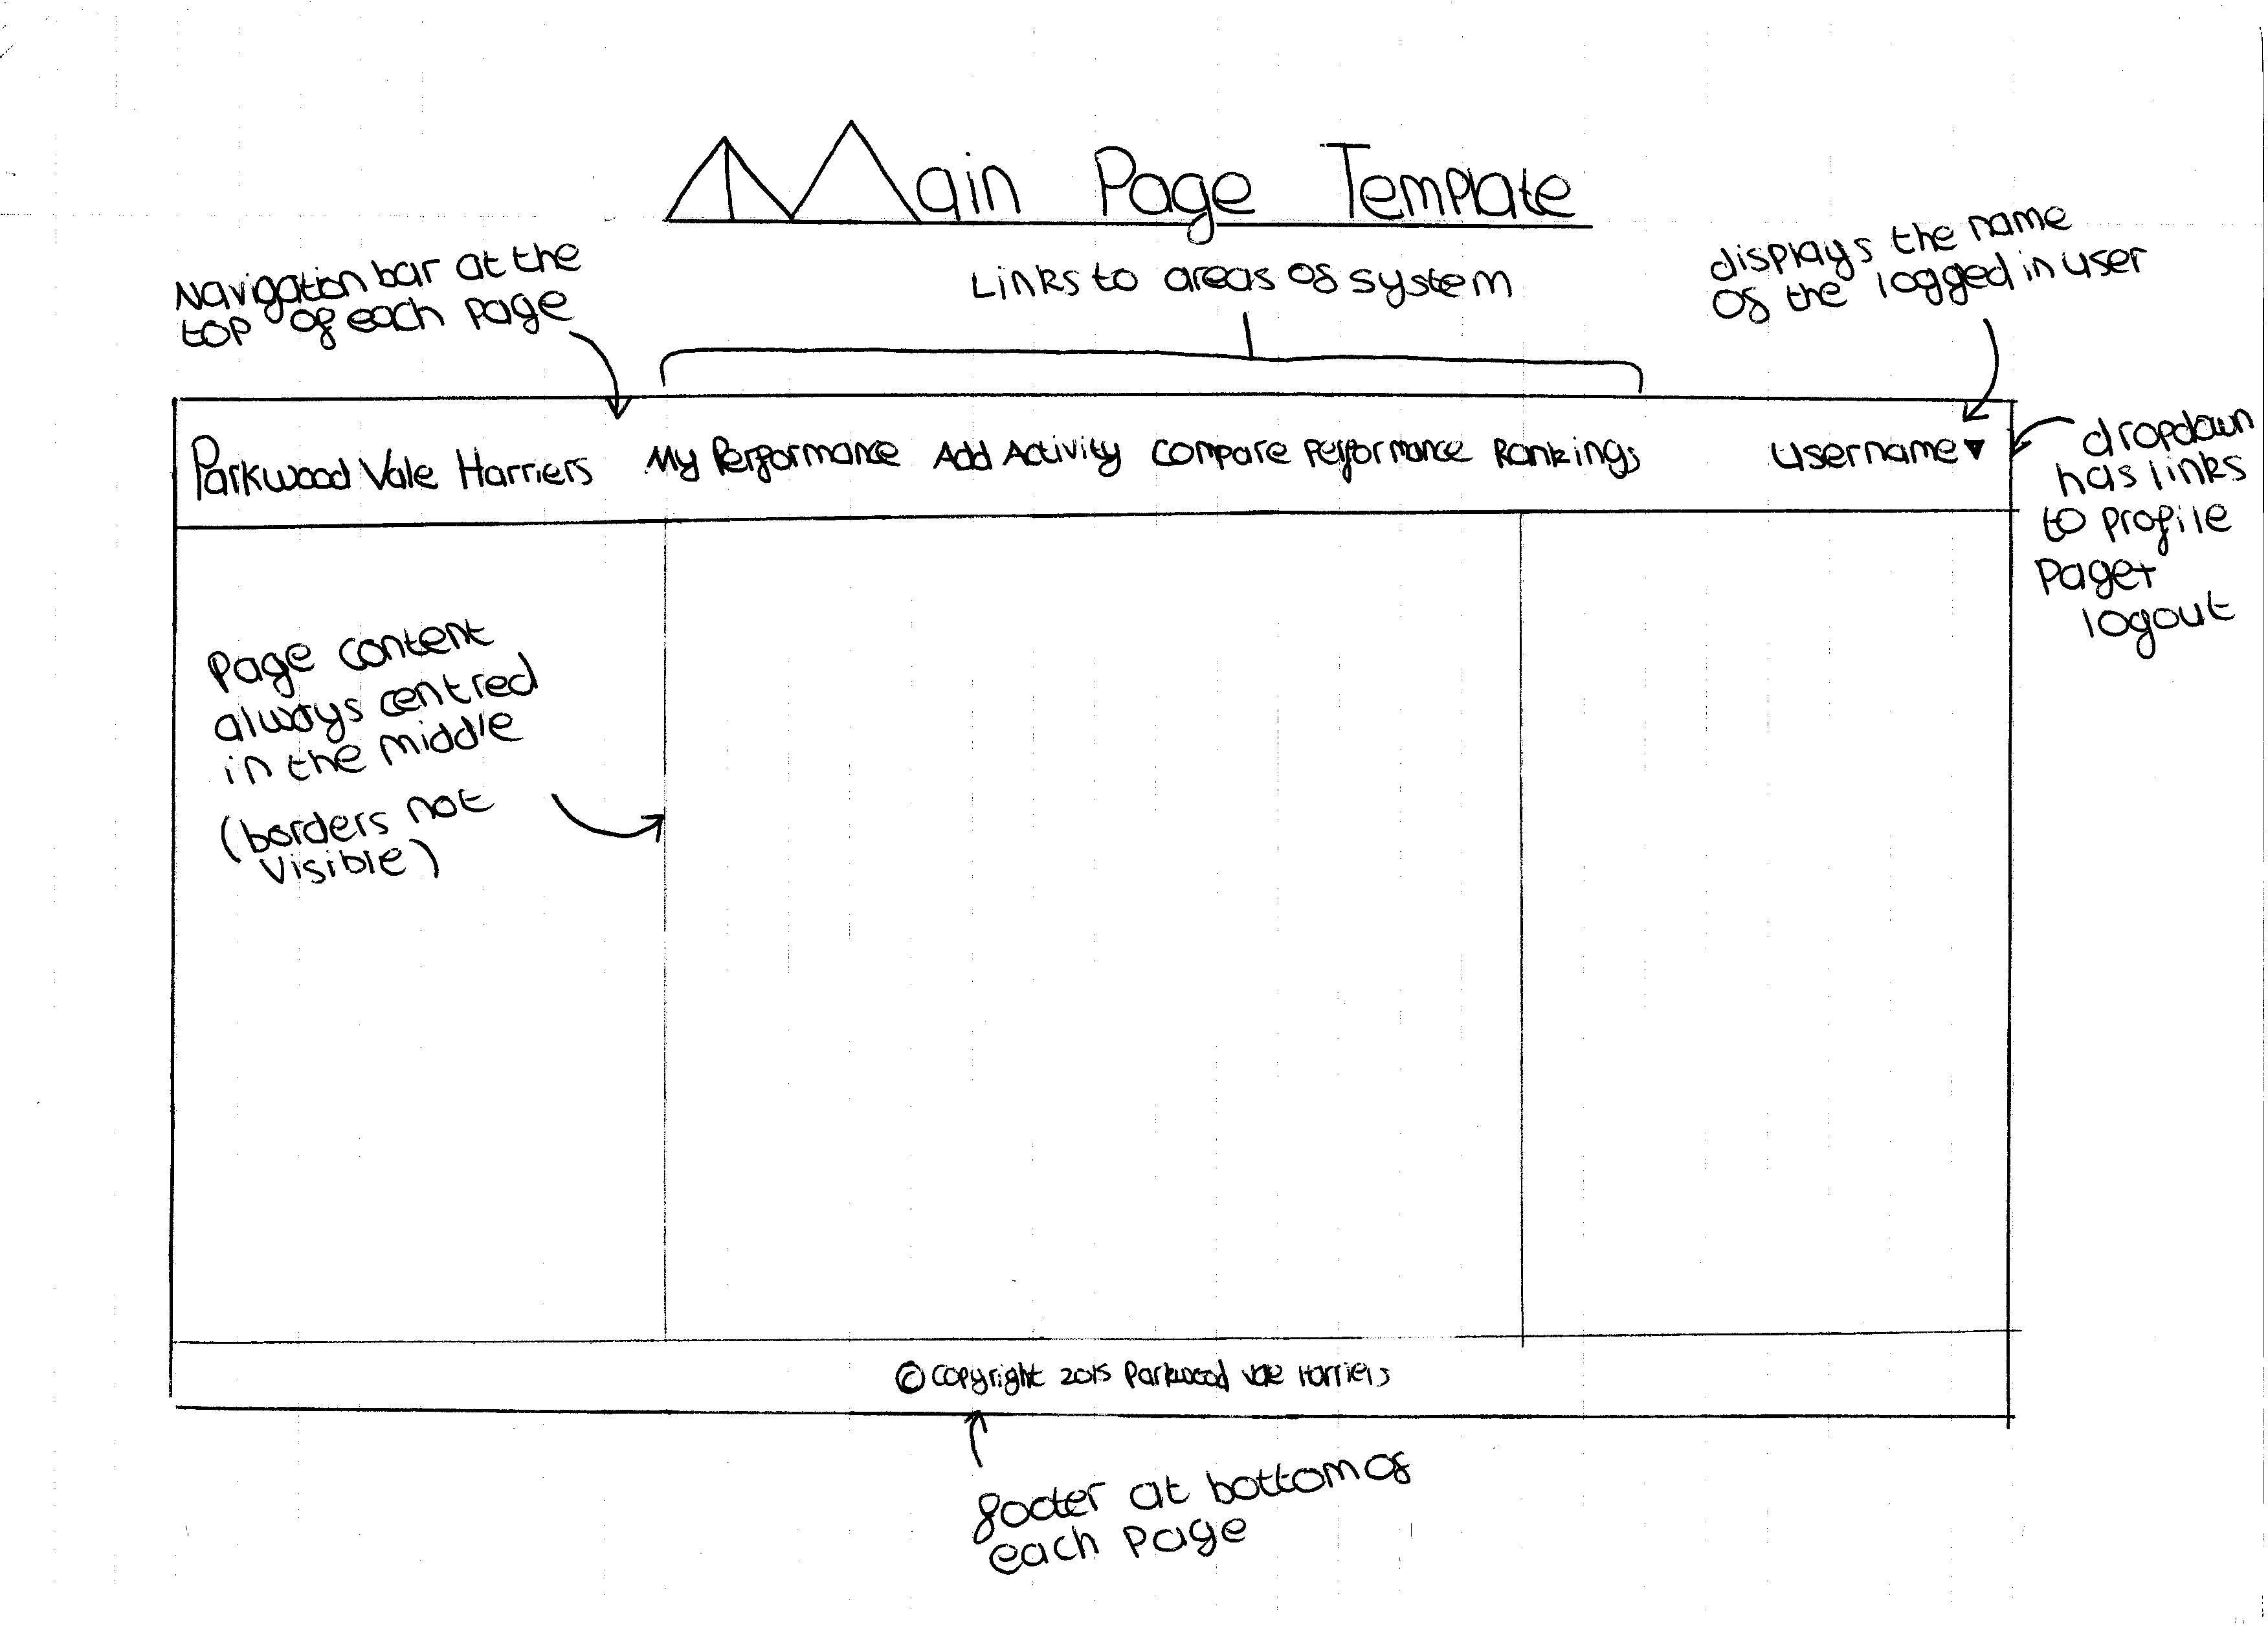 Main Page Template
Navigation bar at the
top of each page
Links to areas of system
displays the name
of the logged in user
Parkwood Vale Harriers My Performance Add Activity Compare Performance Rankings Username ▼
dropdown
has links
to profile
page +
logout
Page content
always centred
in the middle
(borders not
visible)
© Copyright 2015 Parkwood Vale Harriers
footer at bottom of
each page